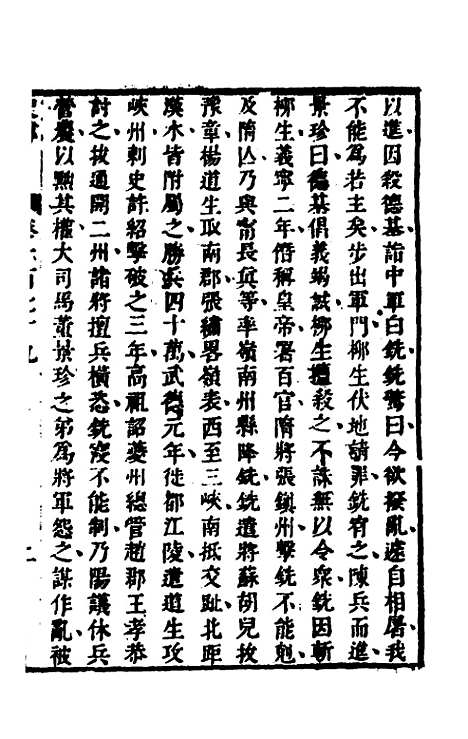 以進因殺德基詣中軍白銑銑驚曰今欲撥亂遽自相屠我
不能爲若主矣步出軍門柳生伏地請罪銑宥之陳兵而進
景珍曰德基倡義竭誠柳生擅殺之不誅無以令衆銑因斬
柳生義寧二年僭稱皇帝署百官隋將張鎮州擊銑不能尅
及隋亾乃與甯長眞等率嶺南州縣降銑銑遣將蘇胡兒拔
豫章楊道生取南郡張繡畧嶺表西至三峽南抵交趾北距
漢水皆附屬之勝兵四十萬武德元年徙都江陵遣道生攻
峽州刺史許紹擊破之三年高祖詔夔州總管趙郡王孝恭
討之拔通開二州諸將擅兵橫恣銑寖不能制乃陽議休兵
營農以黜其權大司馬董景珍之弟爲將軍怨之謀作亂被